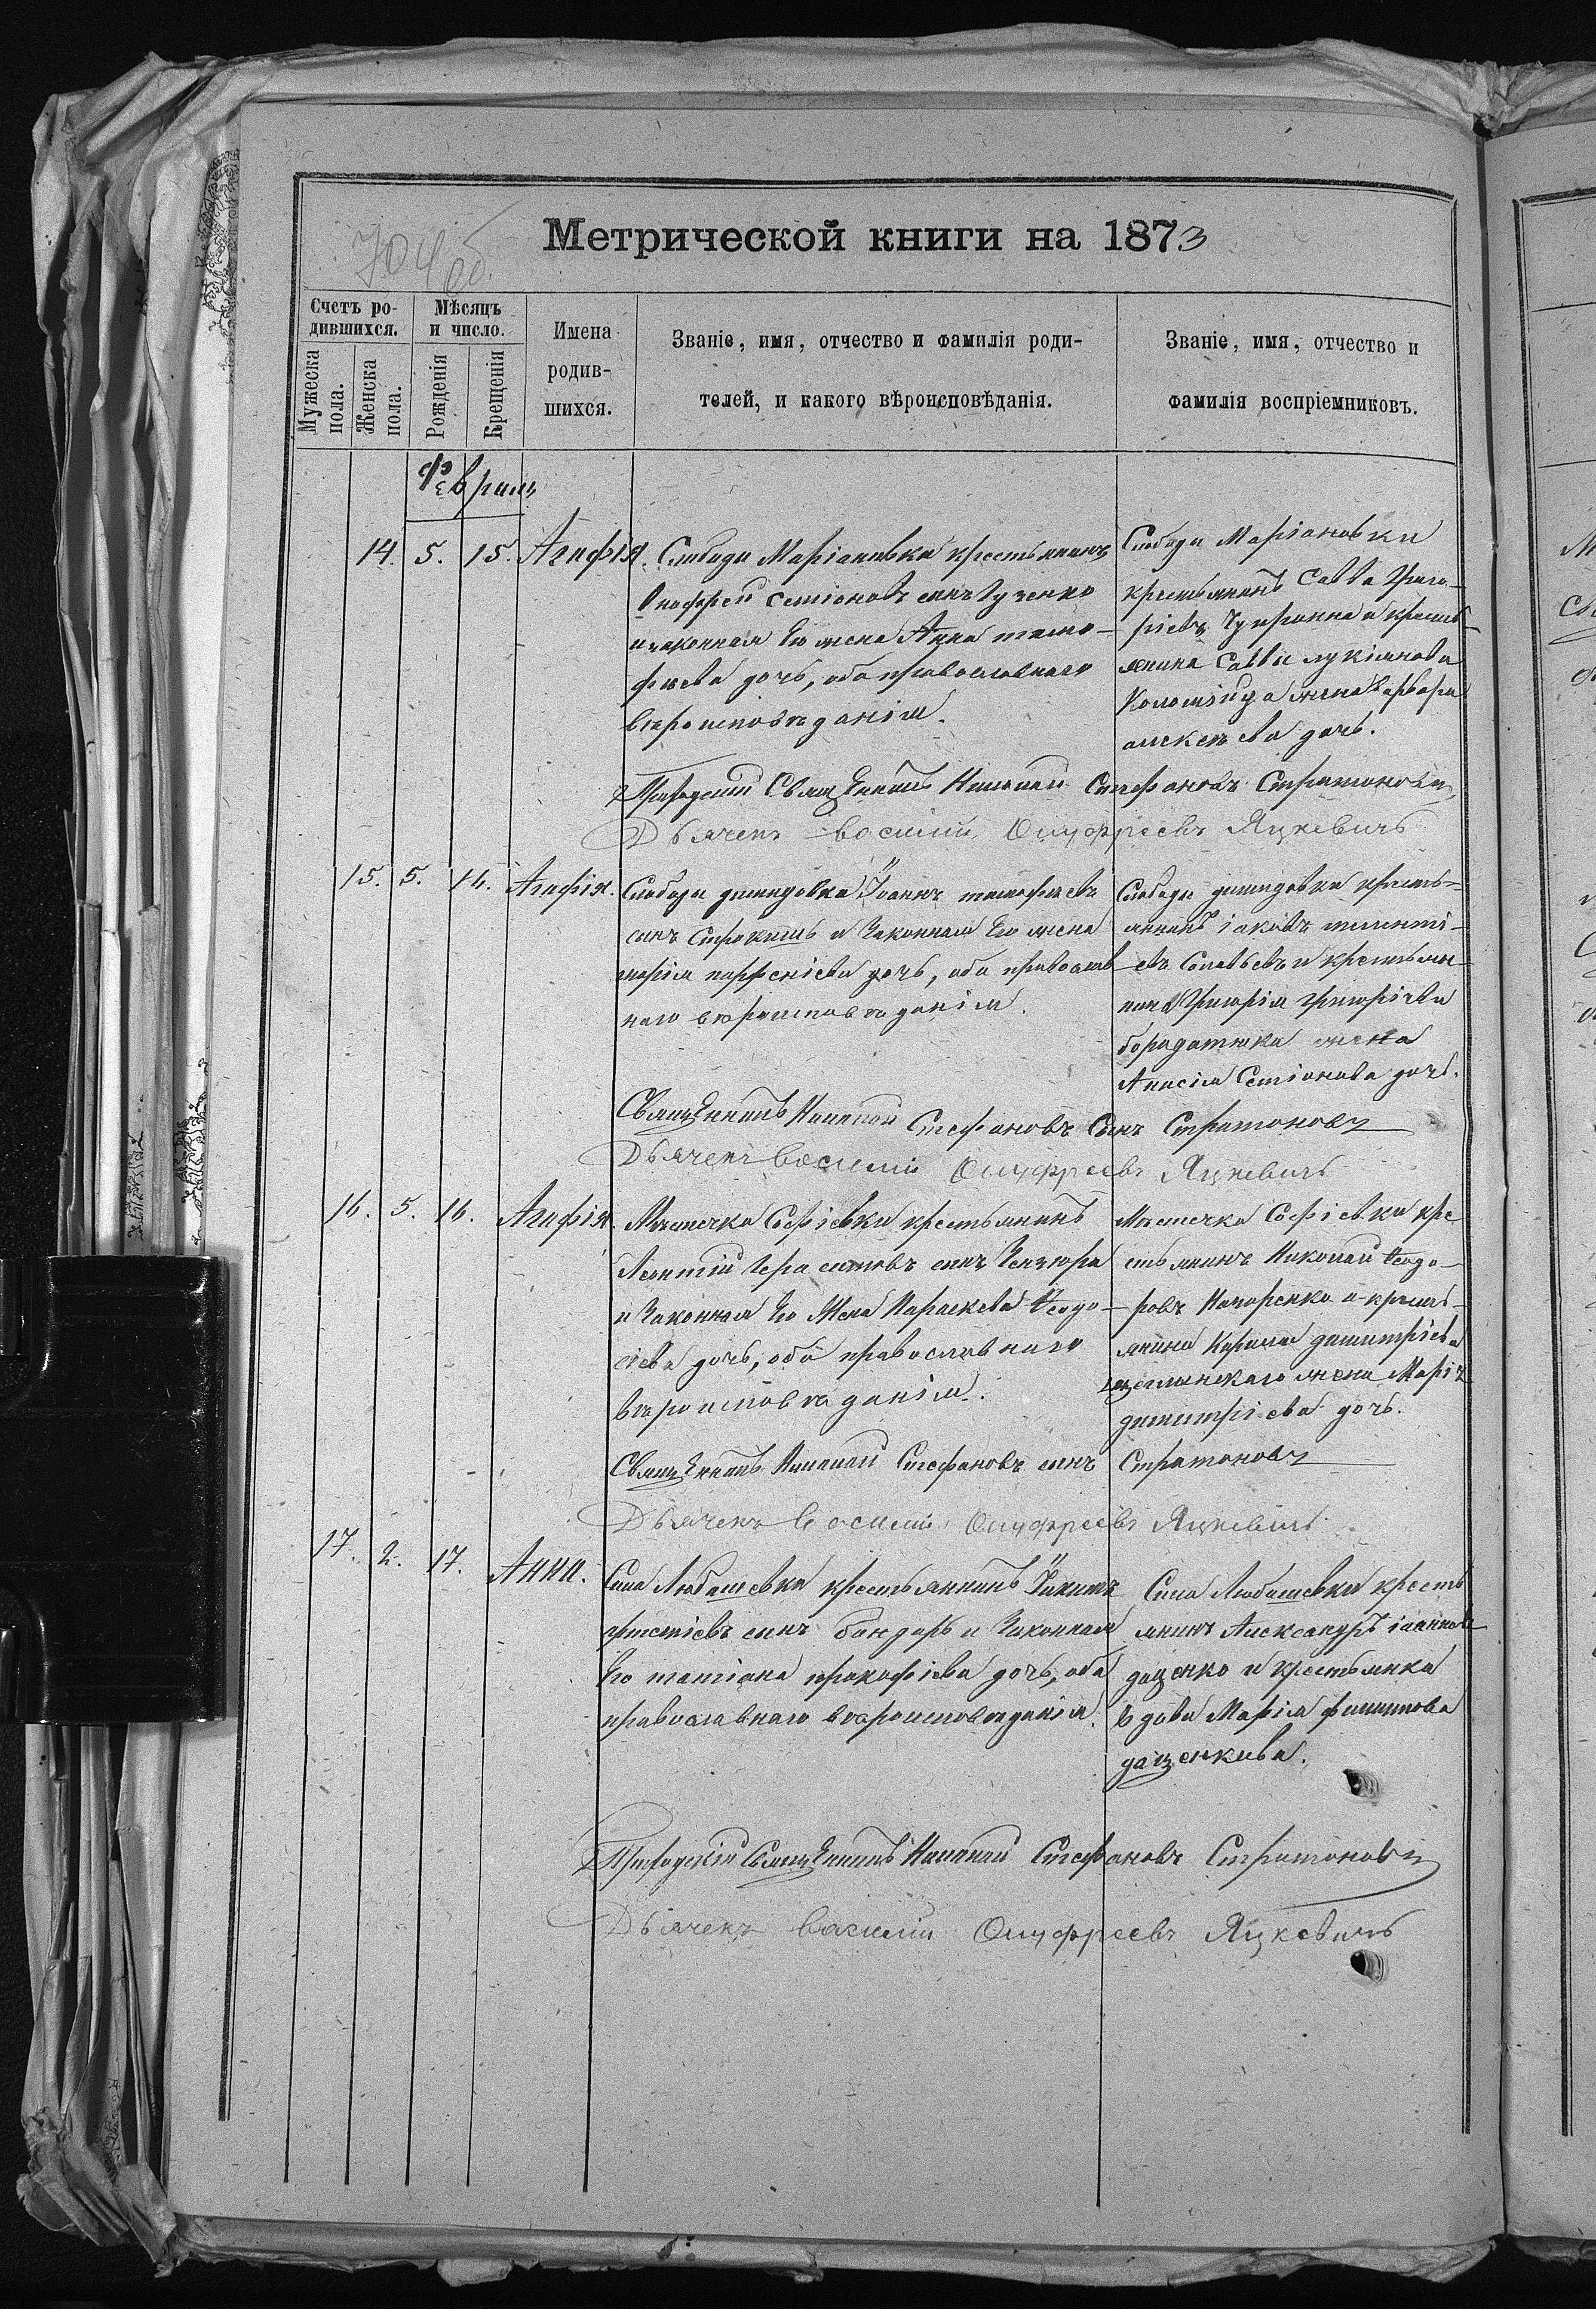 704 об.
Метрической книги на 1873
Счетъ ро-
дившихся.
Мѣсяцъ
и число.
Мужеска
пола.
Женска
пола.
Рожденія
Крещенія
Имена
родив-
шихся.
Званіе, имя, отчество и фамилія роди-
телей, и какого вѣроисповѣданія.
Званіе, имя, отчество и
фамилія воспріемниковъ.
Февраль
14. 5. 15. Агафія. Слободи Маріановки крестьянинъ
Онофрей Семіоновъ сынъ
и законная Его жена Анна тимо-
фѣева дочь, оба православнаго
вѣроисповѣданія.
Слободи Маріановки
крестьянинъ Савва Григо-
ріевъ Чупринна и кресть-
янина Саввы лукіянова
Коломійца жена Варвара
алексѣева дочь.
Приходскій Священникъ Николай Стефановъ Стратоновъ
Дьячекъ василій Онуфреевъ Яцкевичъ
15. 5. 16. Агафія. Слободи демидовки Іоаннъ тимофѣевъ
сынъ и Законная Его жена
марія парфеніева дочь, оба православ
наго вѣроисповѣданія.
Слободи демидовки кресть-
янинъ іаковъ
евъ и крестьян-
нина Григорія григоріева
бородатюка жена
Анисія Семіонова дочь.
Священникъ Николай Стефановъ Сынъ Стратоновъ
Дьячекъ василій Онуфреевъ Яцкевичъ
16. 5. 16. Агафія. Мѣстечка Софіевки крестьянинъ
Леонтій Герасимовъ сынъ
и Законная Его Жена Параскева Ѳеодо-
сіева дочь, оба православнаго
вѣроисповѣданія.
Мѣстечка Софіевки кре
стьянинъ Николай Ѳеодо-
ровъ и кресть-
янина Кирила димитріева
жена Марія
димитріева дочь.
Священникъ Николай Стефановъ сынъ Стратоновъ
Дьячекъ василій Онуфреевъ Яцкевичъ
17. 2. 17. Анна. Села Любашевки крестьянинъ Іакимъ
сынъ бондарь и Законная
Его татіана прокофіева дочь, оба
православнаго вѣроисповѣданія.
Села Любашевки кресть
янинъ Александръ іоанновъ
доценко и крестьянка
вдова Марія филиппова
доценкова.
Приходскій Священникъ Николай Стефановъ Стратоновъ
Дьячекъ василій Онуфреевъ Яцкевичъ